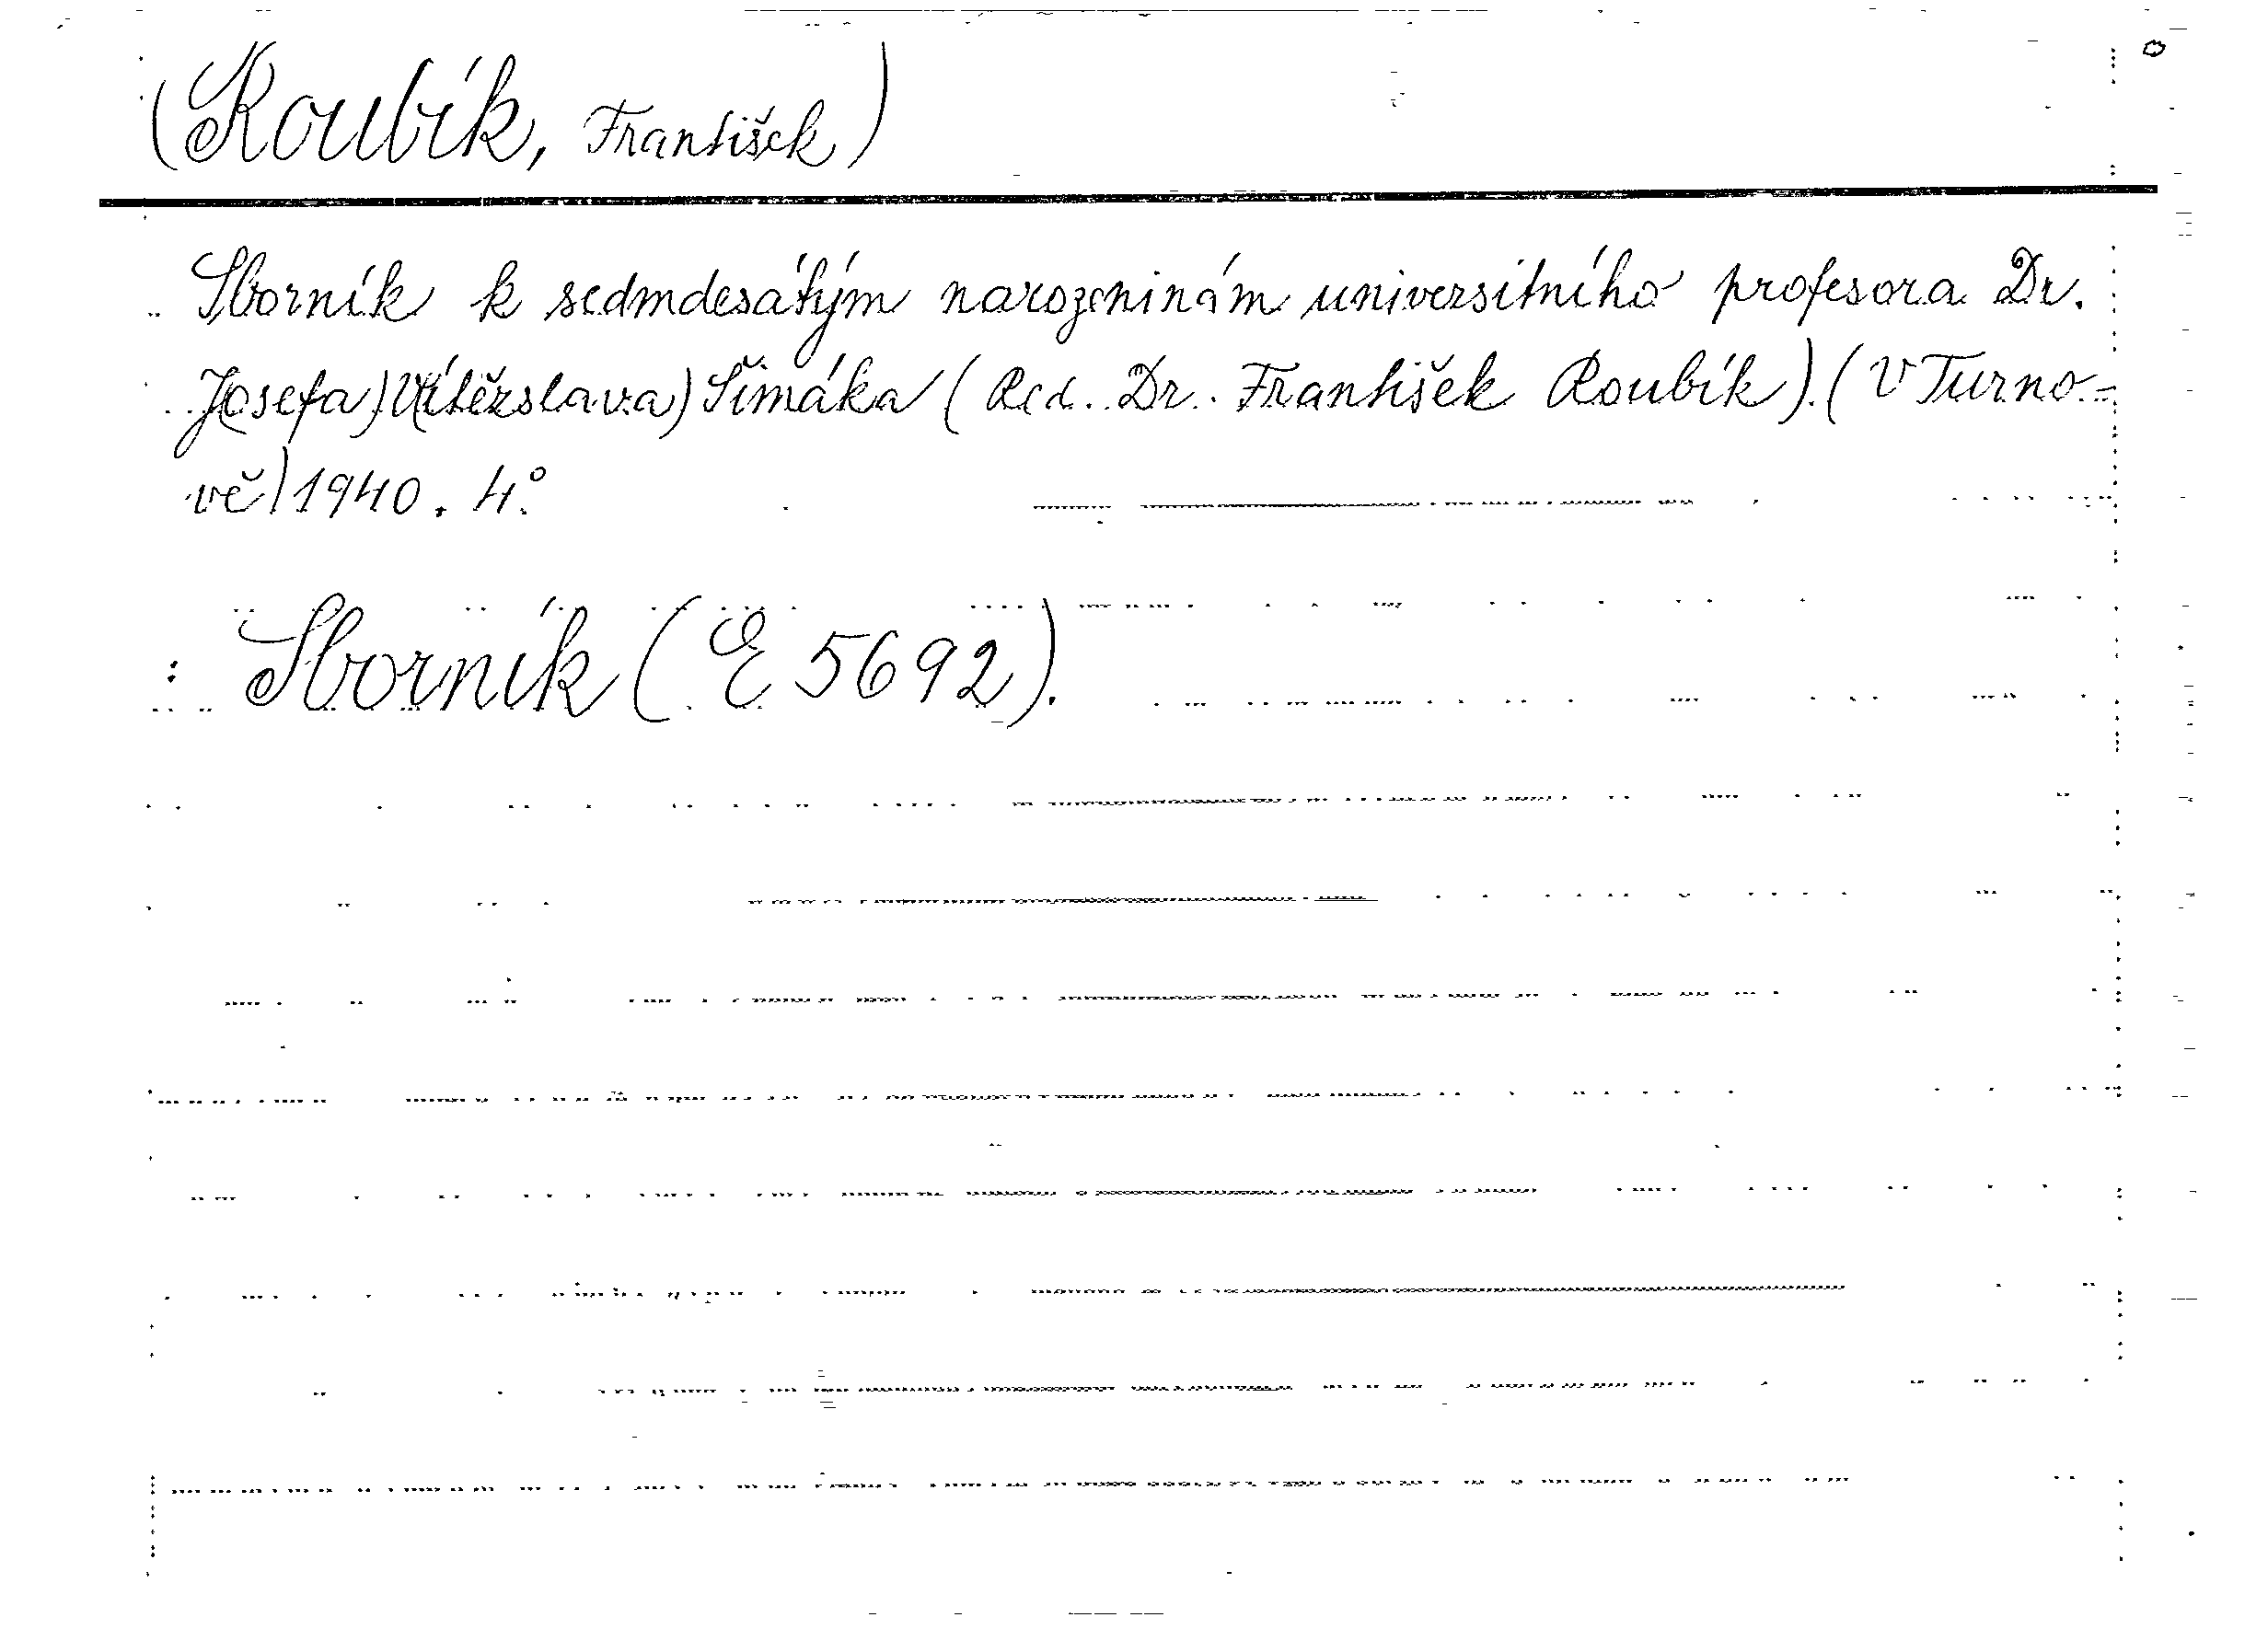 (Roubík, František)
Sborník k sedmdesátým narozeninám universitního profesora Dr.
J(osefa) V(ítězslava) Šimáka (Red. Dr. František Roubík). (V Turno-
vě) 1940. 4°.
Sborník (E 5692).